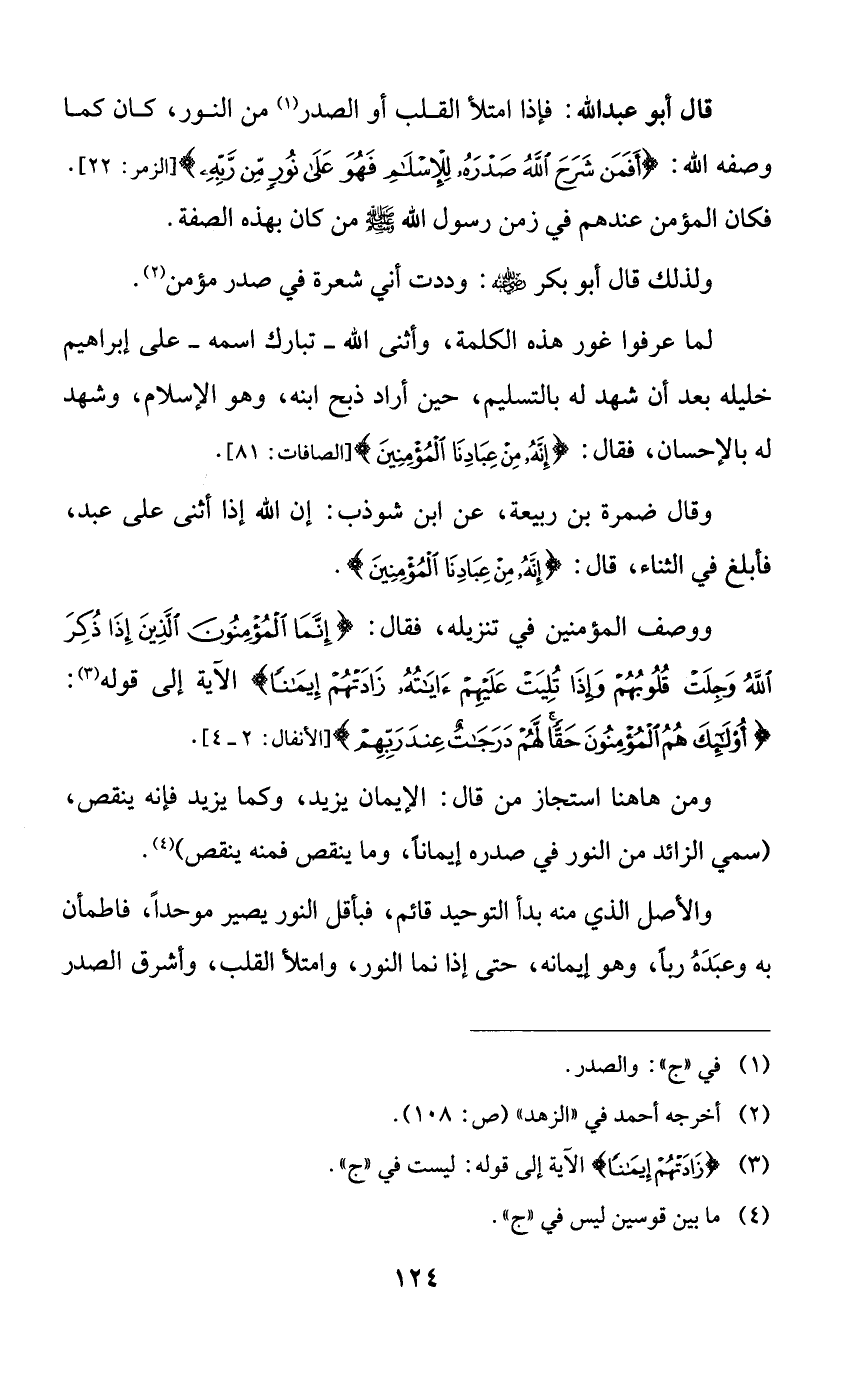 قال أبو عبدالله: فإذا امتلأ القـلـب أو الصدر(١) من النـور، كـان كمـا
وصفه الله: ﴿أَفَمَن شَرَحَ ٱللَّهُ صَدْرَهُۥ لِلْإِسْلَٰمِ فَهُوَ عَلَىٰ نُورٍ مِّن رَّبِّهِۦ﴾[الزمر: ٢٢].
فكان المؤمن عندهم في زمن رسول الله ﷺ من كان بهذه الصفة.
ولذلك قال أبو بكر رضي الله عنه: وددت أني شعرة في صدر مؤمن(٢).
لما عرفوا غور هذه الكلمة، وأثنى الله ـ تبارك اسمه ـ على إبراهيم
خليله بعد أن شهد له بالتسليم، حين أراد ذبح ابنه، وهو الإسلام، وشهد
له بالإحسان، فقال: ﴿إِنَّهُۥ مِنْ عِبَادِنَا ٱلْمُؤْمِنِينَ﴾[الصافات: ٨١].
وقال ضمرة بن ربيعة، عن ابن شوذب: إن الله إذا أثنى على عبد،
فأبلغ في الثناء، قال: ﴿إِنَّهُۥ مِنْ عِبَادِنَا ٱلْمُؤْمِنِينَ﴾.
ووصف المؤمنين في تنزيله، فقال: ﴿إِنَّمَا ٱلْمُؤْمِنُونَ ٱلَّذِينَ إِذَا ذُكِرَ
ٱللَّهُ وَجِلَتْ قُلُوبُهُمْ وَإِذَا تُلِيَتْ عَلَيْهِمْ ءَايَٰتُهُۥ زَادَتْهُمْ إِيمَٰنًا﴾ الآية إلى قوله(٣):
﴿أُوْلَٰٓئِكَ هُمُ ٱلْمُؤْمِنُونَ حَقًّا ۚ لَّهُمْ دَرَجَٰتٌ عِندَ رَبِّهِمْ﴾[الأنفال: ٢ ـ ٤].
ومن هاهنا استجاز من قال: الإيمان يزيد، وكما يزيد فإنه ينقص،
(سمي الزائد من النور في صدره إيماناً، وما ينقص فمنه ينقص)(٤).
والأصل الذي منه بدأ التوحيد قائم، فبأقل النور يصير موحداً، فاطمأن
به وعبَدَهُ رباً، وهو إيمانه، حتى إذا نما النور، وامتلأ القلب، وأشرق الصدر
(١) في «ج»: والصدر.
(٢) أخرجه أحمد في «الزهد» (ص: ١٠٨).
(٣) ﴿زَادَتْهُمْ إِيمَٰنًا﴾ الآية إلى قوله: ليست في «ج».
(٤) ما بين قوسين ليس في «ج».
١٢٤